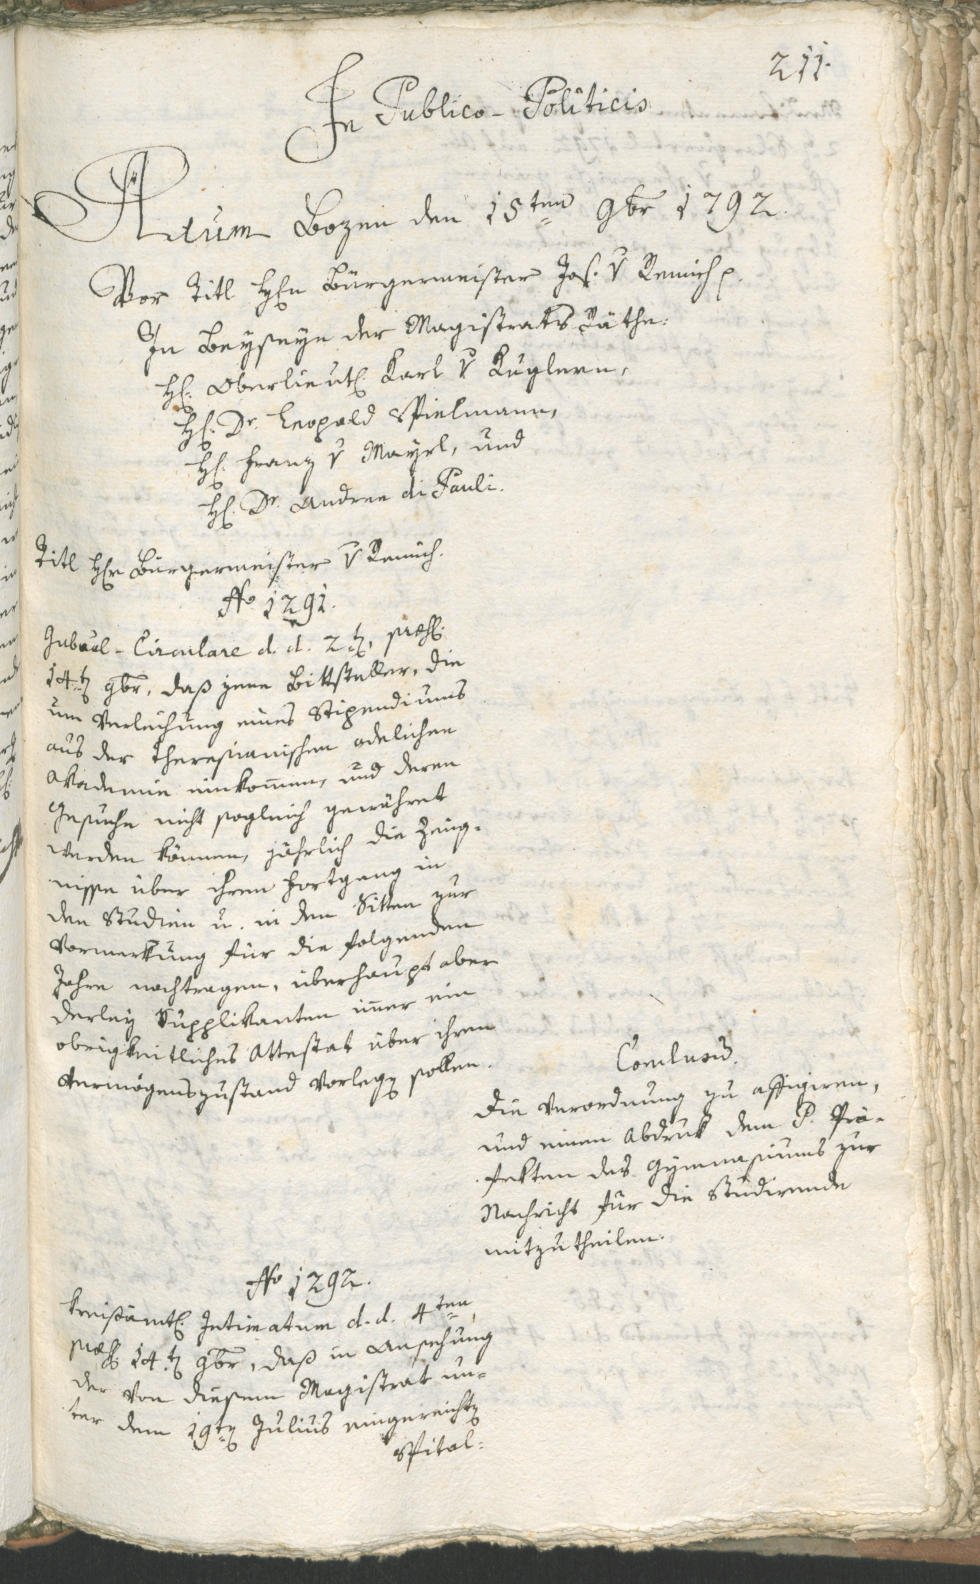 211.
In Publico-Politicis
Actum Bozen den 15ten 9br 1792.
Vor Titl Hh. Bürgermeister Jos. v Remich p.
In Beyseyn der Magistrats Räthe:
H. Oberlieut. Karl v Kuglern,
H. Dr. Leopold Spielmann,
H. Franz v Mayrl, und
H. Dr. Andree di Pauli.
Titl Hr Bürgermeister v Remich.
No 1291.
Gubeal-Circulare d. d. 2t, præs.
14t 9br, daß jene Bittsteller, die
um Verleihung eines Stipendiums
aus der Theresianischen adelichen
Akademie einkommen, und deren
Gesuche nicht sogleich gewähret
werden können, jährlich die Zeug-
nisse über ihren Fortgang in
den Studien u. in den Sitten zur
Vormerkung für die folgenden
Jahre nachtragen, überhaupt aber
derley Supplikanten imer ein
obrigkeitliches Attestat über ihren
Vermögenszustand vorleg sollen.
Conclusu.
Die Verordnung zu affigiren,
und einen Abdruk dem P. Prä-
fekten des Gymnasiums zur
Nachricht für die Studirende
mitzutheilen.
No 1292.
Kreisämtl. Intimatum d. d. 4ten,
præs 14t 9br, daß in Ansehung
der von diesem Magistrat un-
ter dem 19t Julius eingereicht
Spital-